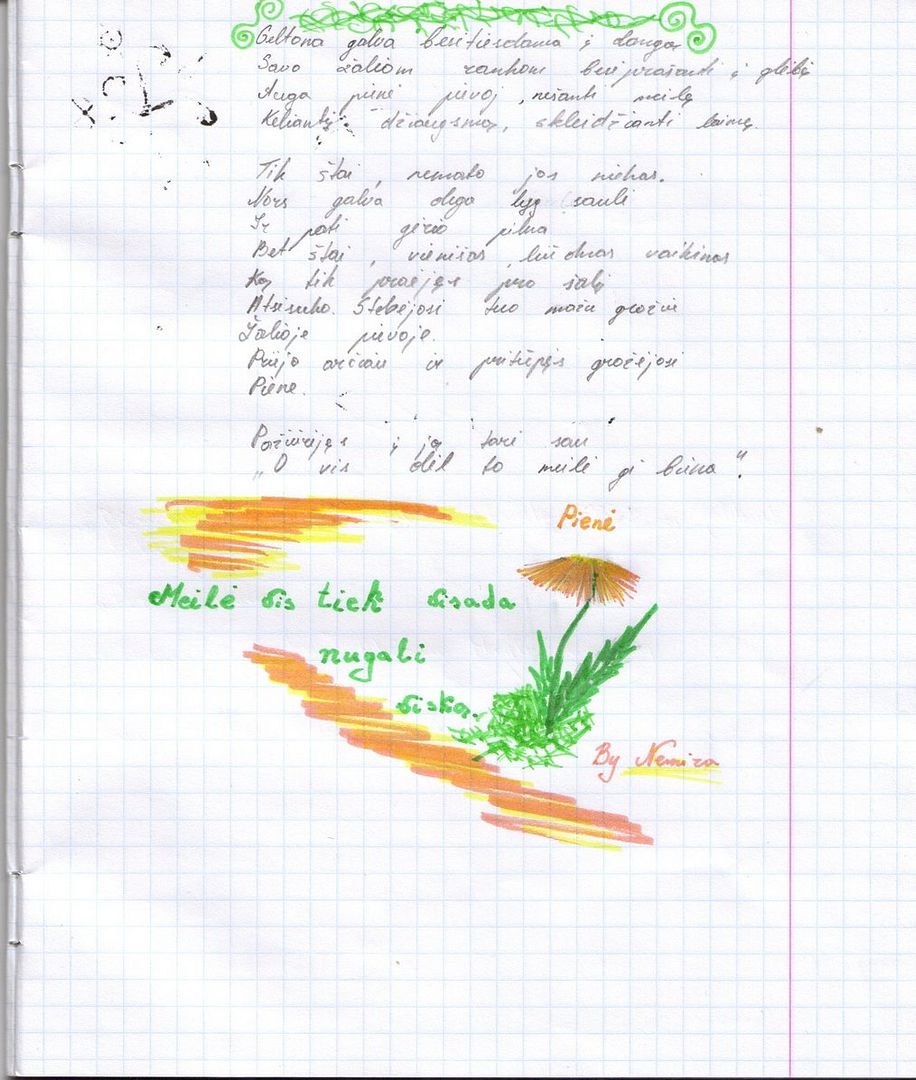 Geltona galva besitiesdama į dangų
Savo žaliom rankom besiprašanti į glėbį
Auga pienė pievoj, nešanti meilę
Keliantį džiaugsmą, skleidžianti laimę.
Tik štai, nemato jos niekas.
Nors galva dega lyg saulė
Ir pati gėrio pilna
Bet štai, vienišas, liūdnas vaikinas
Ką tik praėjęs pro šalį
Atsisuko. Stebėjosi tuo mažu grožiu
Žalioje pievoje.
Priėjo arčiau ir pritūpęs grožėjosi
Piene.
Pažiūrėjęs į ją tarė sau
„O vis dėl to meilė gi būna".
Pienė
Meilė vis tiek visada
nugali
viską.
By Nemira